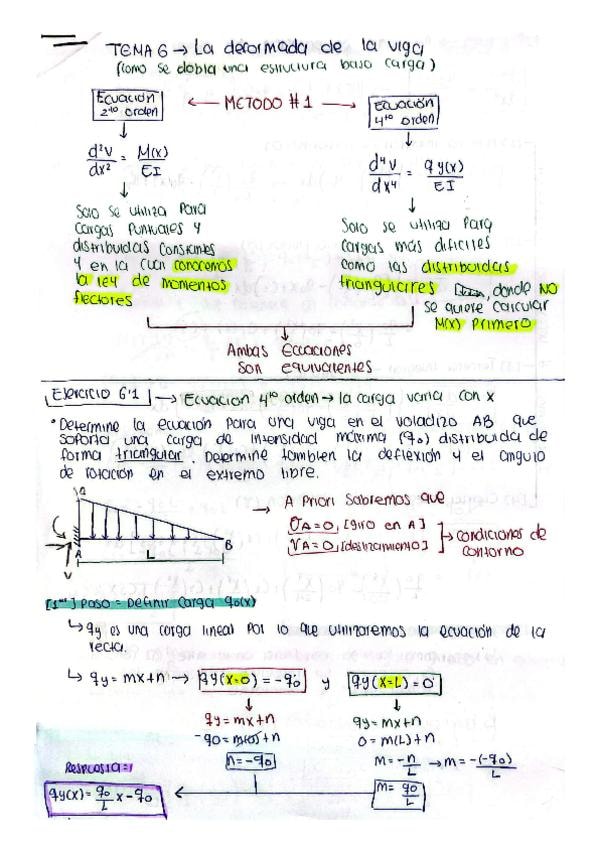 TEMA 6 → La deformada de la viga
(como se dobla una estructura bajo carga)
Ecuación
2to orden
← METODO #1 →
Ecuación
4to orden
d²V/dx² = M(x)/EI
d⁴V/dx⁴ = qy(x)/EI
Solo se utiliza para
cargas puntuales y
distribuidas constantes
y en la cual conocemos
la ley de momentos
flectores
Solo se utiliza para
cargas más dificiles
como las distribuidas
triangulares, donde NO
se quiere calcular
M(x) primero
Ambas Ecuaciones
son equivalentes
Ejercicio 6.1 → Ecuacion 4to orden → la carga varia con x
• Determine la ecuación para una viga en el voladizo AB que
soporta una carga de intensidad máxima (q0) distribuida de
forma triangular. Determine tambien la deflexión y el angulo
de rotación en el extremo libre.
A
B
L
V
→ A Priori sabremos que
θA=0, [giro en A]
VA=0, [deslizamiento]
→ condiciones de
contorno
[1er] Paso = Definir carga q0(x)
↳ qy es una carga lineal por lo que utilizaremos la ecuación de la
recta.
↳ qy = mx+n → qy(x=0) = -q0 y qy(x=L) = 0
qy = mx+n
-q0 = m(0)+n
n = -q0
qy = mx+n
0 = m(L)+n
m = -n/L → m = -(-q0)/L
m = q0/L
Respuesta:
qy(x) = q0/L x - q0